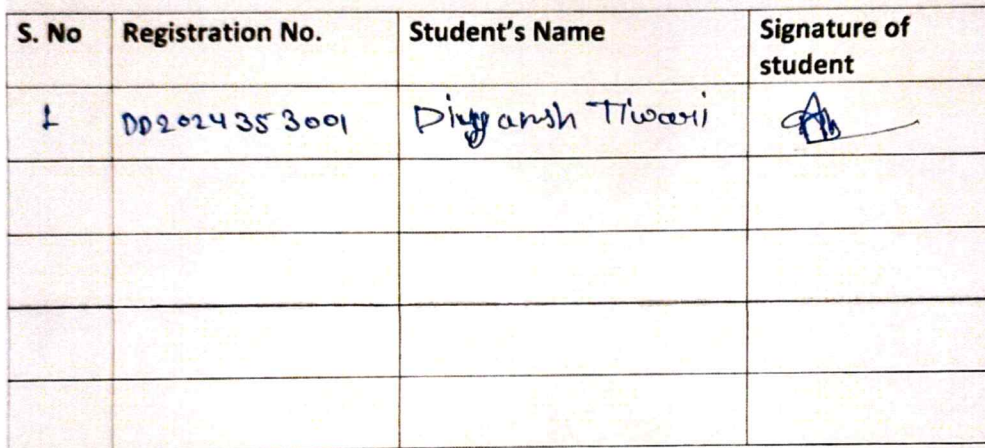 S. No Registration No. Student's Name Signature of
student
1 DD2024353001 Divyansh Tiwari